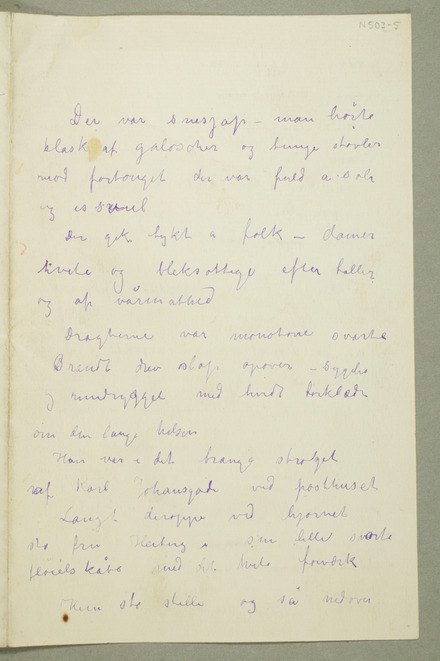 N 503-5
Der var snesjap – man hörte
klask af galoscher og tunge støvler
mod fortouget der var fuld a sole
og is
Der gik tykt a folk – damer
hvide og bleksottige efter baller
og af vårmathed
Dragterne var monotone svarte
Brandt drev slap opover –
og rundrygget med hvidt törklæde
om den lange halsen
Han var i det trange ströget
af Karl Johansgade ved posthuset
Langt deroppe ved hjørnet
sto fru Heiberg i sin lille svarte
fløielskåbe med sit hvide forværk
Hun sto stille og så nedover